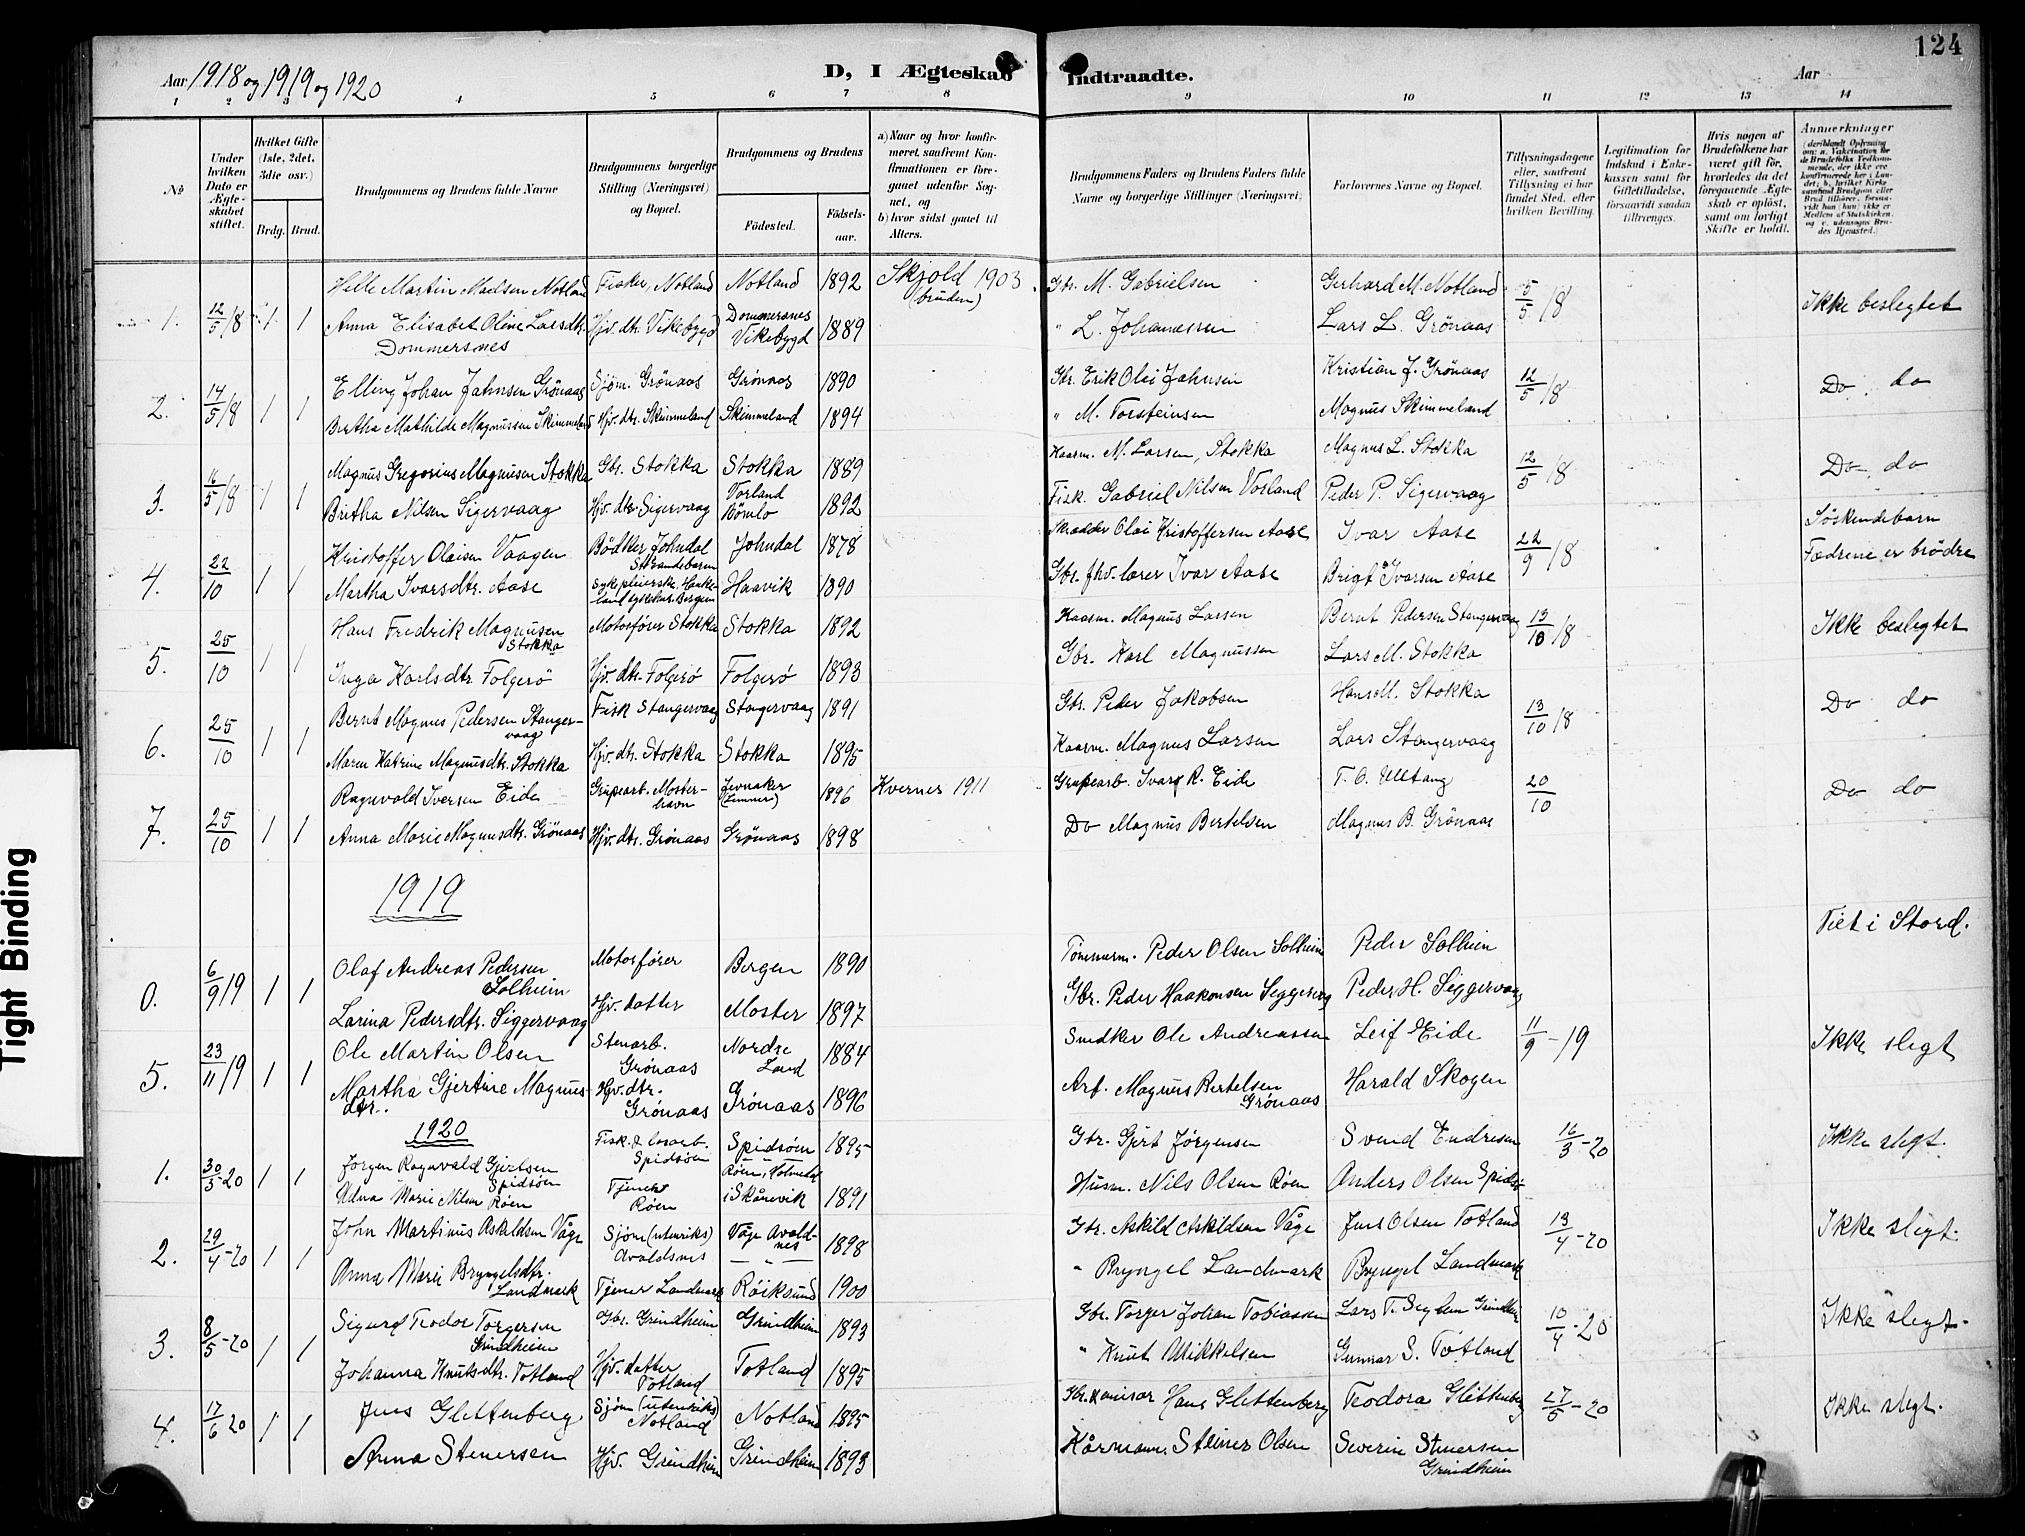 124
Aar 1918 og 1919 og 1920
D, I Ægteskab Indtraadte.
Aar
1 2 3 4 5 6 7 8 9 10 11 12 13 14
No
Under hvilken Dato er Ægteskabet stiftet.
Hvilket Gifte (1ste, 2det, 3die osv.)
Brdg. Brud.
Brudgommens og Brudens fulde Navne
Brudgommens borgerlige Stilling (Næringsvei) og Bopæl.
Brudgommens og Brudens
Fødested.
Fødselsaar.
a) Naar og hvor konfirmeret, saafremt Konfirmationen er foregaaet udenfor Sognet, og
b) hvor sidst gaaet til Alters.
Brudgommens Faders og Brudens Faders fulde Navne og borgerlige Stillinger (Næringsvei)
Forlovernes Navne og Bopæl.
Tillysningsdagene eller, saafremt Tillysning ei har fundet Sted, efter hvilken Bevilling.
Legitimation for Indskud i Enkekassen samt for Giftetilladelse, forsaavidt saadan tiltrænges.
Hvis nogen af Brudefolkene har været gift før, hvorledes da det foregaaende Ægteskab er opløst, samt om lovligt Skifte er holdt.
Anmerkninger (deriblandt Oplysning om: a. Vakcination for de Brudefolks Vedkommende, der ikke ere konfirmerede her i Landet; b. hvilket Kirkesamfund Brudgom eller Brud tilhører, forsaavidt han (hun) ikke er Medlem af Statskirken, og c. udensogns Brudes Hjemsted.)
1. 12/5 18 1 1 Helle Martin Madsen Notland Fisker, Notland Notland 1892 Skjold 1903 (bruden) Gbr. M. Gabrielsen Gerhard M. Notland 5/5 18 Ikke beslegtet
Anna Elisabet Oline Larsdtr. Dommersnes Hjv. dtr. Vikebygd Dommersnes Vikebygd 1889 " L. Johannessen Lars L. Grönaas
2. 14/5 18 1 1 Elling Johan Jahnsen Grönaas Sjøm. Grönaas Grönaas 1890 Gbr. Erik Olai Jahnsen Kristian J. Grönaas 12/5 18 Do do
Bertha Mathilde Magnussen Skimmeland Hjv. dtr. Skimmeland Skimmeland 1894 " M. Torsteinsen Magnus Skimmeland
3. 16/5 18 1 1 Magnus Gregorius Magnusen Stokka Gbr. Stokka Stokka 1889 Kaarm. M. Larsen, Stokka Magnus L. Stokka 12/5 18 Do do
Britha Nilsen Sigervaag Hjv. dtr. Sigervaag Vorland Bömlo 1892 Fisk. Gabriel Nilsen Vorland Peder P. Sigervaag
4. 22/10 1 1 Kristoffer Olaisen Vaagen Bödker Johndal Strandebarm Johndal 1878 Skrædder Olai Kristoffersen Aase Ivar Aase 22/9 18 Söskendebarn Fædrene er brödre
Martha Ivarsdtr. Aase Sykepleierske Haukeland sykehus Bergen Haavik 1890 Gbr. fhv. lærer Ivar Aase Brigt Ivarsen Aase
5. 25/10 1 1 Hans Fredrik Magnusen Stokka Motorfører Stokka Stokka 1892 Kaarm. Magnus Larsen Bernt Pedersen Stangervaag 13/10 18 Ikke beslegtet
Inga Karlsdtr Folgerö Hjv. dtr. Folgerö Folgerö 1893 Gbr. Karl Magnussen Lars M. Stokka
6. 25/10 1 1 Bernt Magnus Pedersen Stangervaag Fisk Stangervaag Stangervaag 1891 Gbr. Peder Jakobsen Hans M. Stokka 13/10 18 Do do
Maren Katrine Magnusdtr. Stokka Hjv. dtr. Stokka Stokka 1895 Kaarm. Magnus Larsen Lars Stangervaag
7. 25/10 1 1 Ragnvald Iversen Eide Grupearb. Mosterhavn Jevnaker 1896 Kvernes 1911 Grupearb. Ivar R. Eide T. O. Ulltang 20/10 Do do
Anna Marie Magnusdtr. Grönaas Hjv. dtr. Grönaas Grönaas 1898 Do Magnus Bertelsen Magnus B. Grönaas
1919
0. 6/9 19 1 1 Olaf Andreas Pedersen Solheim Motorfører Bergen 1890 Tømmerm. Peder Olsen Solheim Peder Solheim Viet i Stord.
Larina Pedersdtr. Siggervaag Hjv. datter Moster 1897 Gbr. Peder Haakonsen Siggervaag Peder H. Siggervaag
5. 23/11 19 1 1 Ole Martin Olsen Stenarb. Grönaas Nordre Land 1884 Snedker Ole Andreassen Leif Eide 11/9 - 19 Ikke slegt
Martha Gjertine Magnusdtr. Hjv. dtr. Grönaas Grönaas 1896 Arb. Magnus Bertelsen Grönaas Harald Skogen
1920
1. 30/5 - 20 1 1 Jørgen Ragnvald Gjertsen Spidsöen Fisk. & Spidsöen Spidsöen 1895 Gbr. Gjert Jørgensen Svend Endresen 16/3 - 20 Ikke slegt.
Adna Marie Nilsen Röen Tjener Röen Röen, Holmedal i Skånevik 1891 Husm. Nils Olsen Röen Anders Olsen Spidsö
2. 29/4 - 20 1 1 John Martinus Askildsen Våge Sjöm (utenriks) Avaldsnes Våge Avaldsnes 1898 Gbr. Askild Askildsen Våge Jens Olsen Totland 13/4 - 20 Ikke slegt.
Anna Marie Bryngelsdtr. Landmark Tjener Landmark Röiksund 1900 " Bryngel Landmark Bryngel Landmark
3. 8/5 - 20 1 1 Sigurd Teodor Torgersen Grindheim Gbr. Grindheim Grindheim 1893 Gbr. Torger Johan Tobiassen Lars T. Grindheim 10/4 - 20 Ikke slegt.
Johanna Knutsdtr. Totland Hjv. datter Totland Totland 1895 " Knut Mikkelsen Gunnar S. Totland
4. 17/6 20 1 1 Jens Glettenberg Sjöm (utenriks) Notland Notland 1895 Hans Glettenberg Teodora Glettenberg 27/5 - 20 Ikke slegt.
Anna Stenersen Hjv. Grindheim Grindheim 1893 Kårmann. Steiner Olsen Severin Stenersen Grindheim
Tight Binding